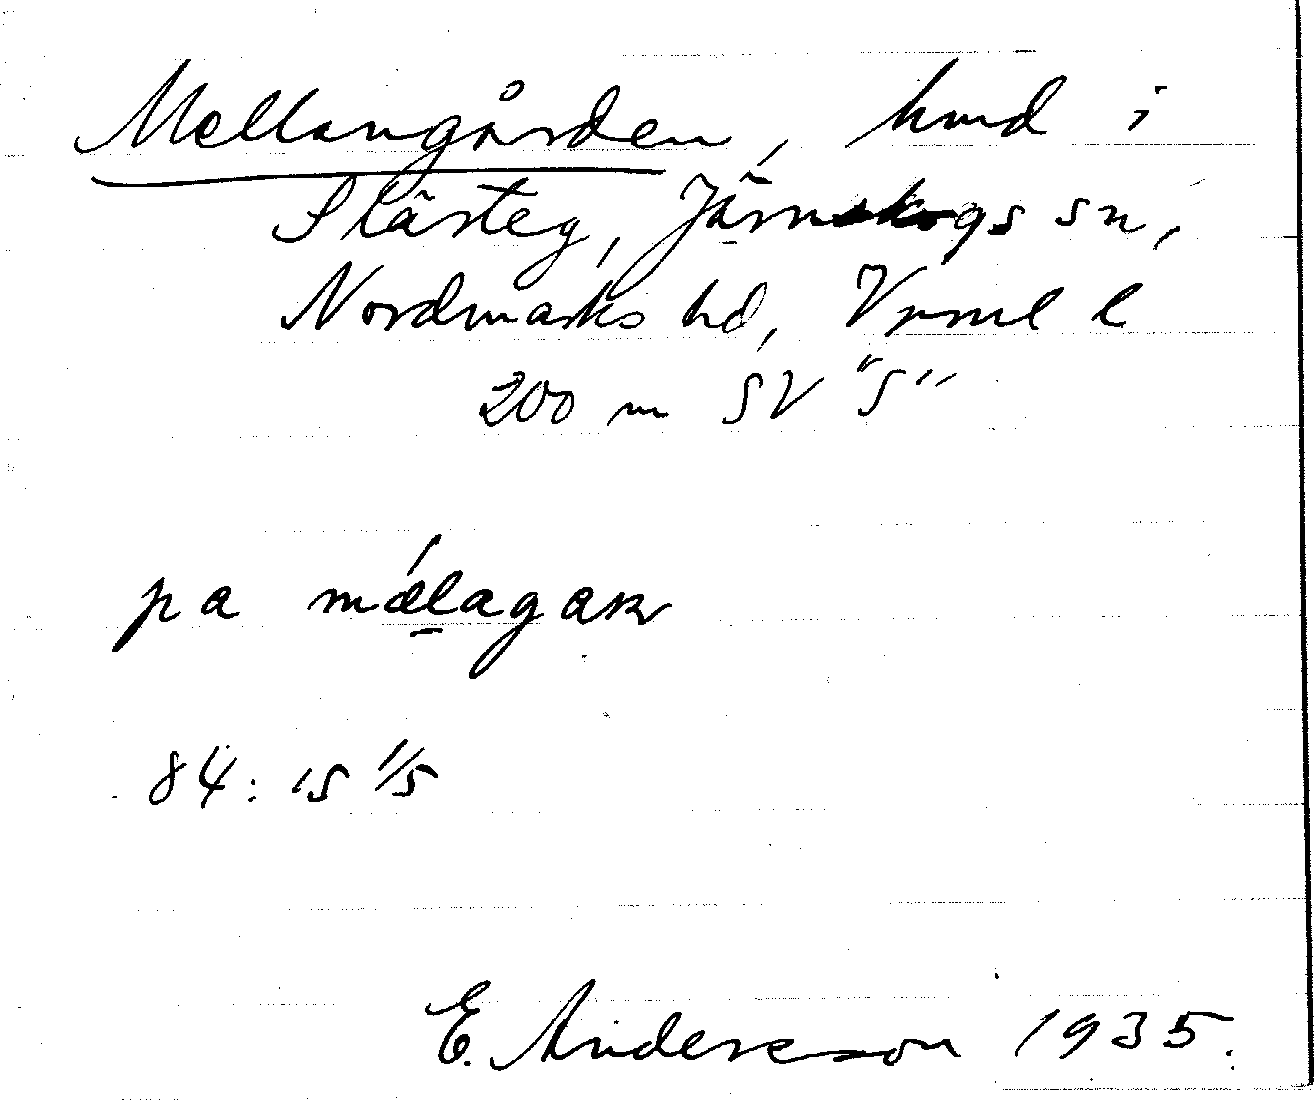 Mellangården, hmd i
Slärteg, Järnskogs sn,
Nordmarks hd, Vrml l
200 m SV "S"
pa mælagaɳ
84: 15 1/5
E. Andersson 1935.